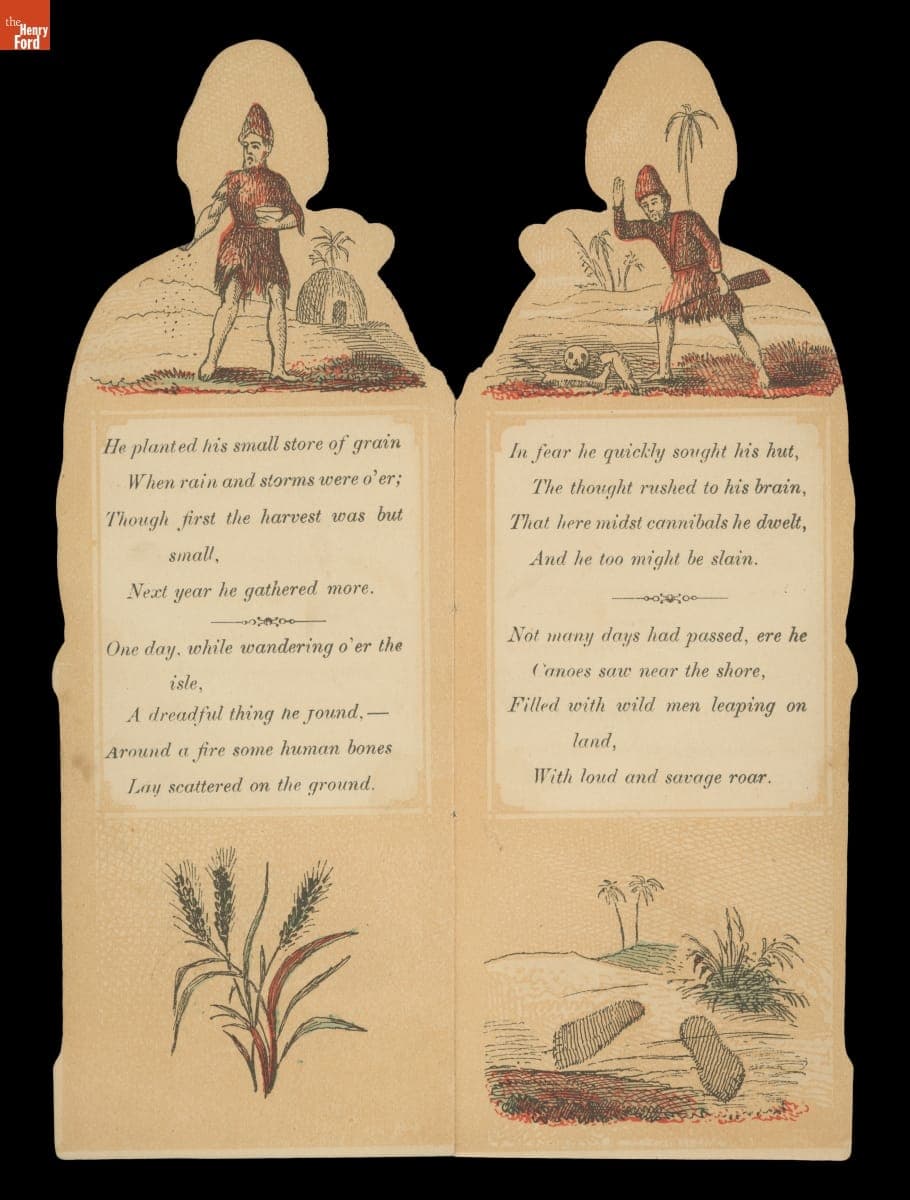 the
Henry
Ford
He planted his small store of grain
When rain and storms were o'er;
Though first the harvest was but
small,
Next year he gathered more.
One day, while wandering o'er the
isle,
A dreadful thing he found, —
Around a fire some human bones
Lay scattered on the ground.
In fear he quickly sought his hut,
The thought rushed to his brain,
That here midst cannibals he dwelt,
And he too might be slain.
Not many days had passed, ere he
Canoes saw near the shore,
Filled with wild men leaping on
land,
With loud and savage roar.